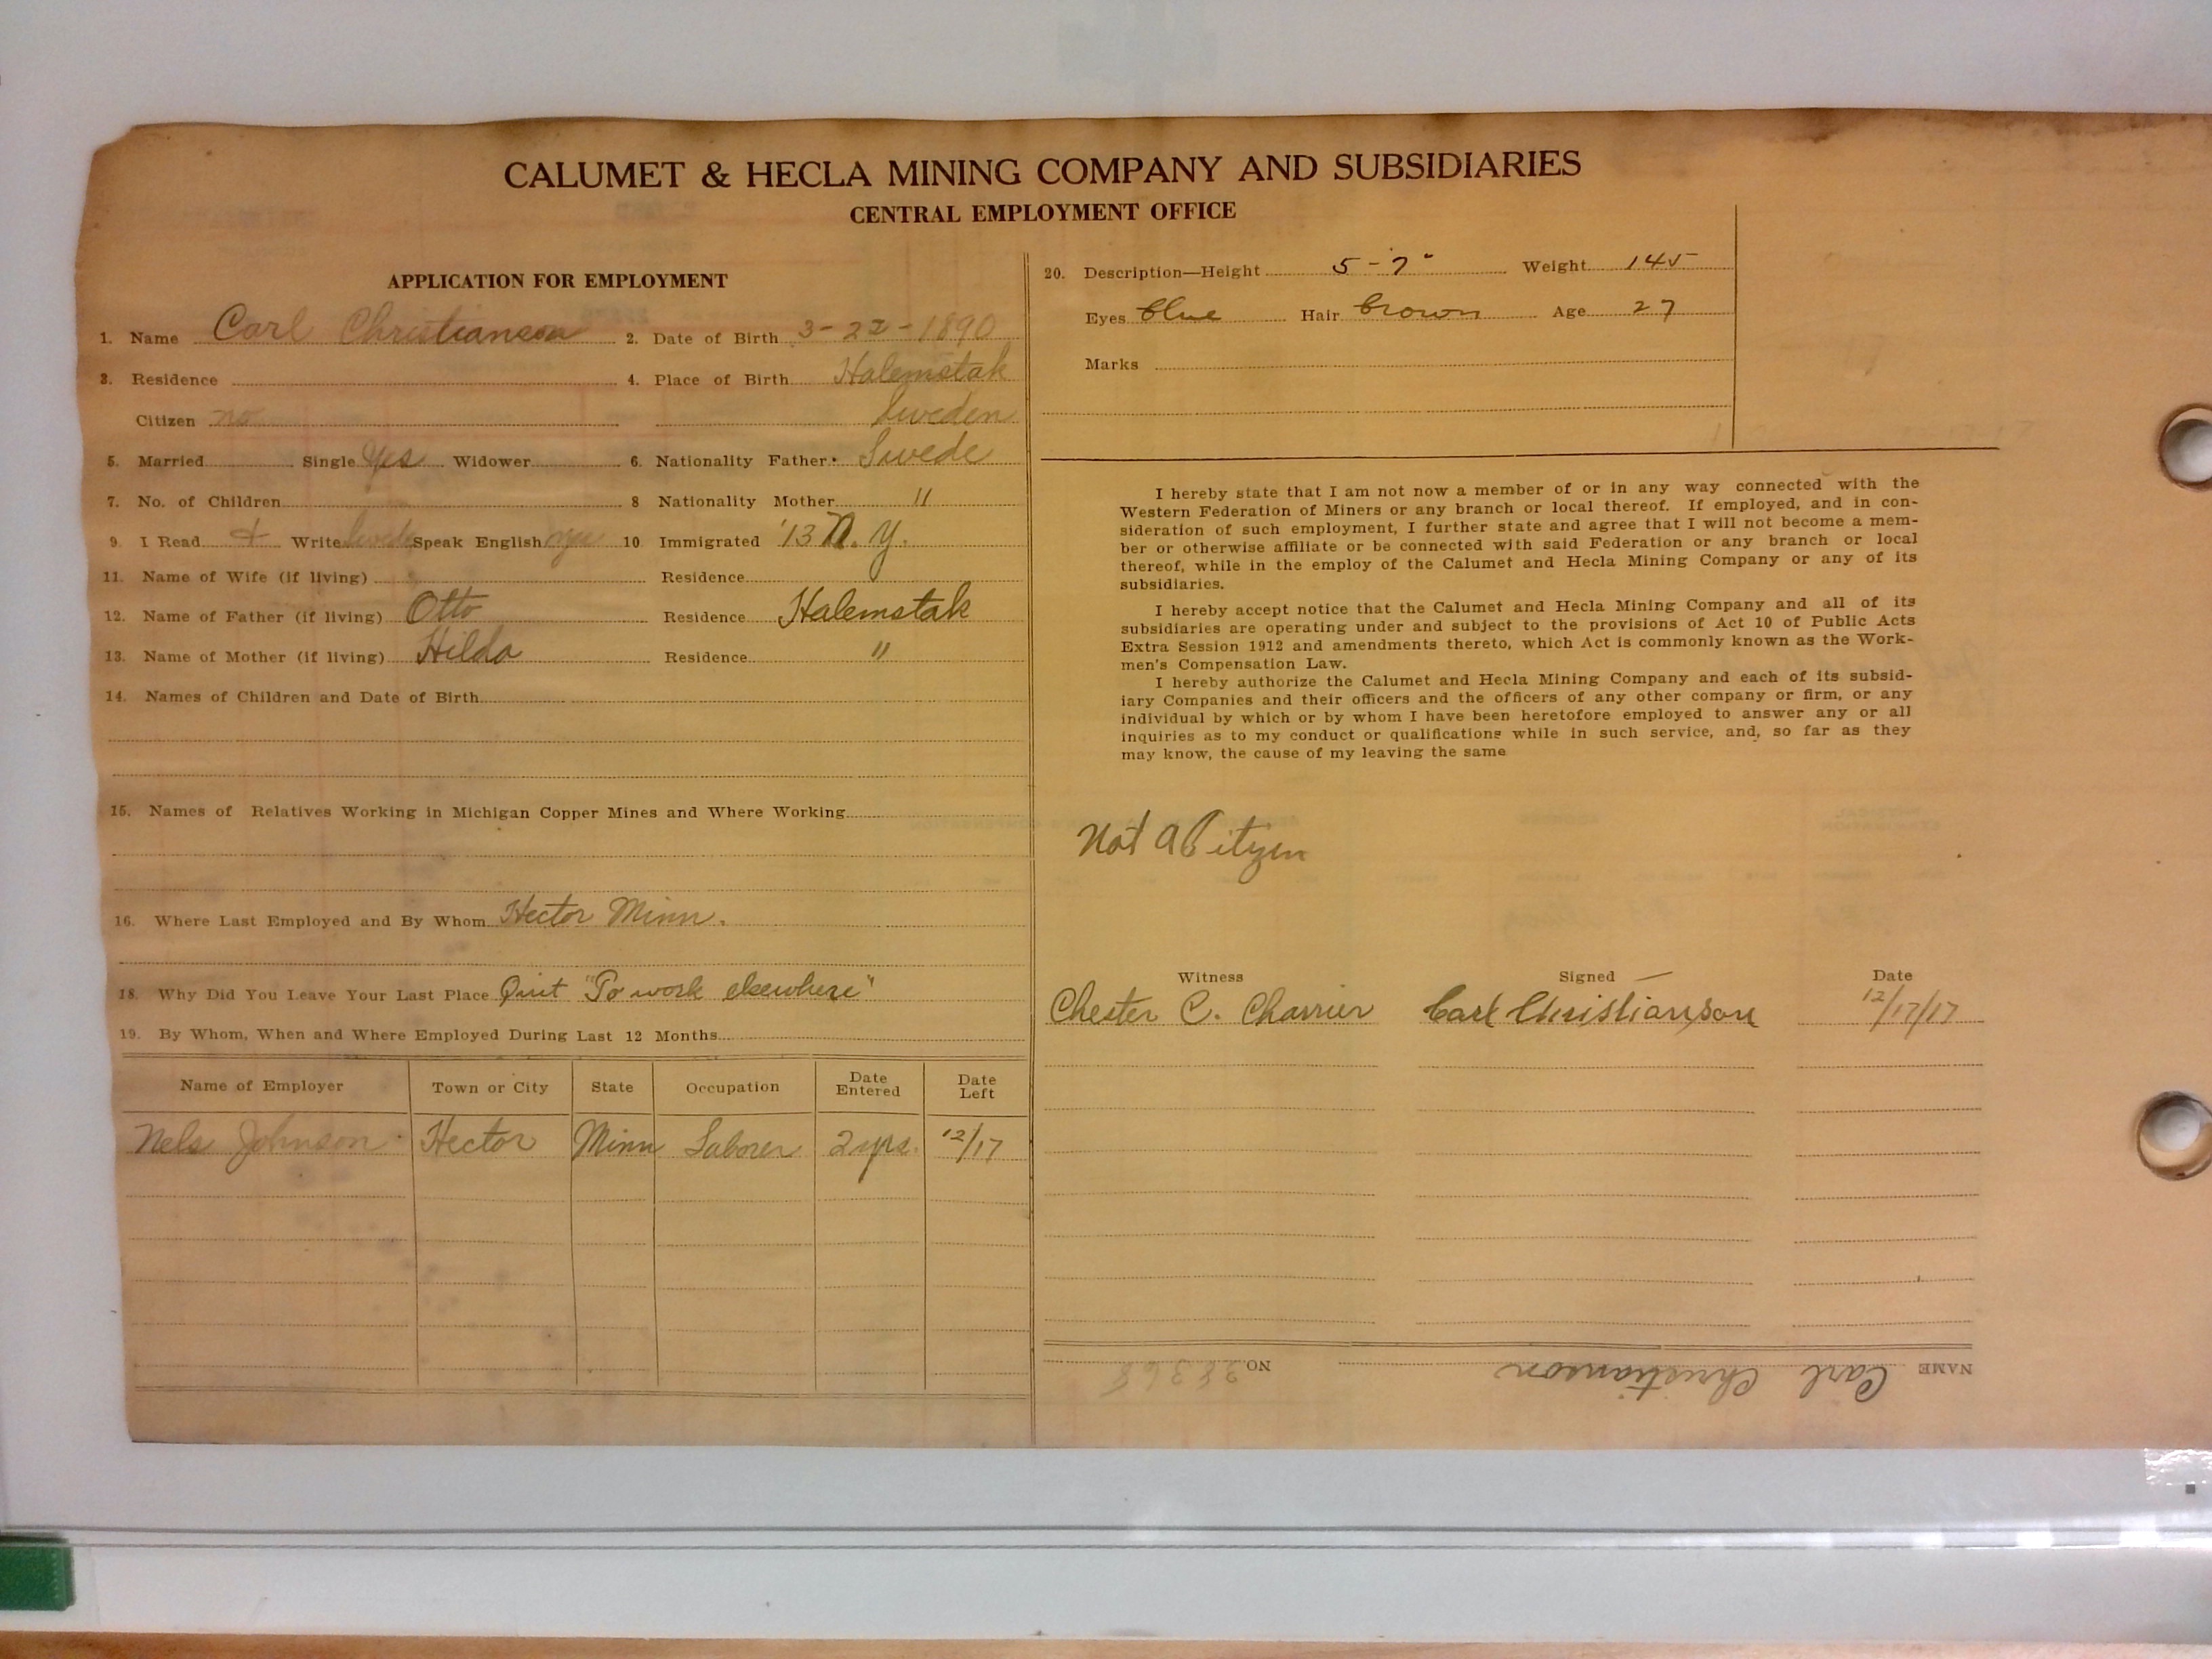 CALUMET & HECLA MINING COMPANY AND SUBSIDIARIES
CENTRAL EMPLOYMENT OFFICE
APPLICATION FOR EMPLOYMENT
1. Name Carl Christianson 2. Date of Birth 3-22-1890
3. Residence 4. Place of Birth Halemstak
Citizen no Sweden
5. Married Single Yes Widower 6. Nationality Father Swede
7. No. of Children 8 Nationality Mother "
9. I Read + Write Swede Speak English yes 10 Immigrated '13 N. Y.
11. Name of Wife (if living) Residence
12. Name of Father (if living) Otto Residence Halemstak
13. Name of Mother (if living) Hilda Residence "
14. Names of Children and Date of Birth
15. Names of Relatives Working in Michigan Copper Mines and Where Working
16. Where Last Employed and By Whom Hector Minn.
18. Why Did You Leave Your Last Place Quit "To work elsewhere"
19. By Whom, When and Where Employed During Last 12 Months
Name of Employer Town or City State Occupation Date Entered Date Left
Nels Johnson Hector Minn Laborer 2 yrs. 12/17
20. Description—Height 5-7" Weight 145
Eyes blue Hair brown Age 27
Marks
I hereby state that I am not now a member of or in any way connected with the
Western Federation of Miners or any branch or local thereof. If employed, and in con-
sideration of such employment, I further state and agree that I will not become a mem-
ber or otherwise affiliate or be connected with said Federation or any branch or local
thereof, while in the employ of the Calumet and Hecla Mining Company or any of its
subsidiaries.
I hereby accept notice that the Calumet and Hecla Mining Company and all of its
subsidiaries are operating under and subject to the provisions of Act 10 of Public Acts
Extra Session 1912 and amendments thereto, which Act is commonly known as the Work-
men's Compensation Law.
I hereby authorize the Calumet and Hecla Mining Company and each of its subsid-
iary Companies and their officers and the officers of any other company or firm, or any
individual by which or by whom I have been heretofore employed to answer any or all
inquiries as to my conduct or qualifications while in such service, and, so far as they
may know, the cause of my leaving the same
Not a Citizen
Witness Signed Date
Chester C. Charrier Carl Christianson 12/17/17
NAME Carl Christianson NO. 28368